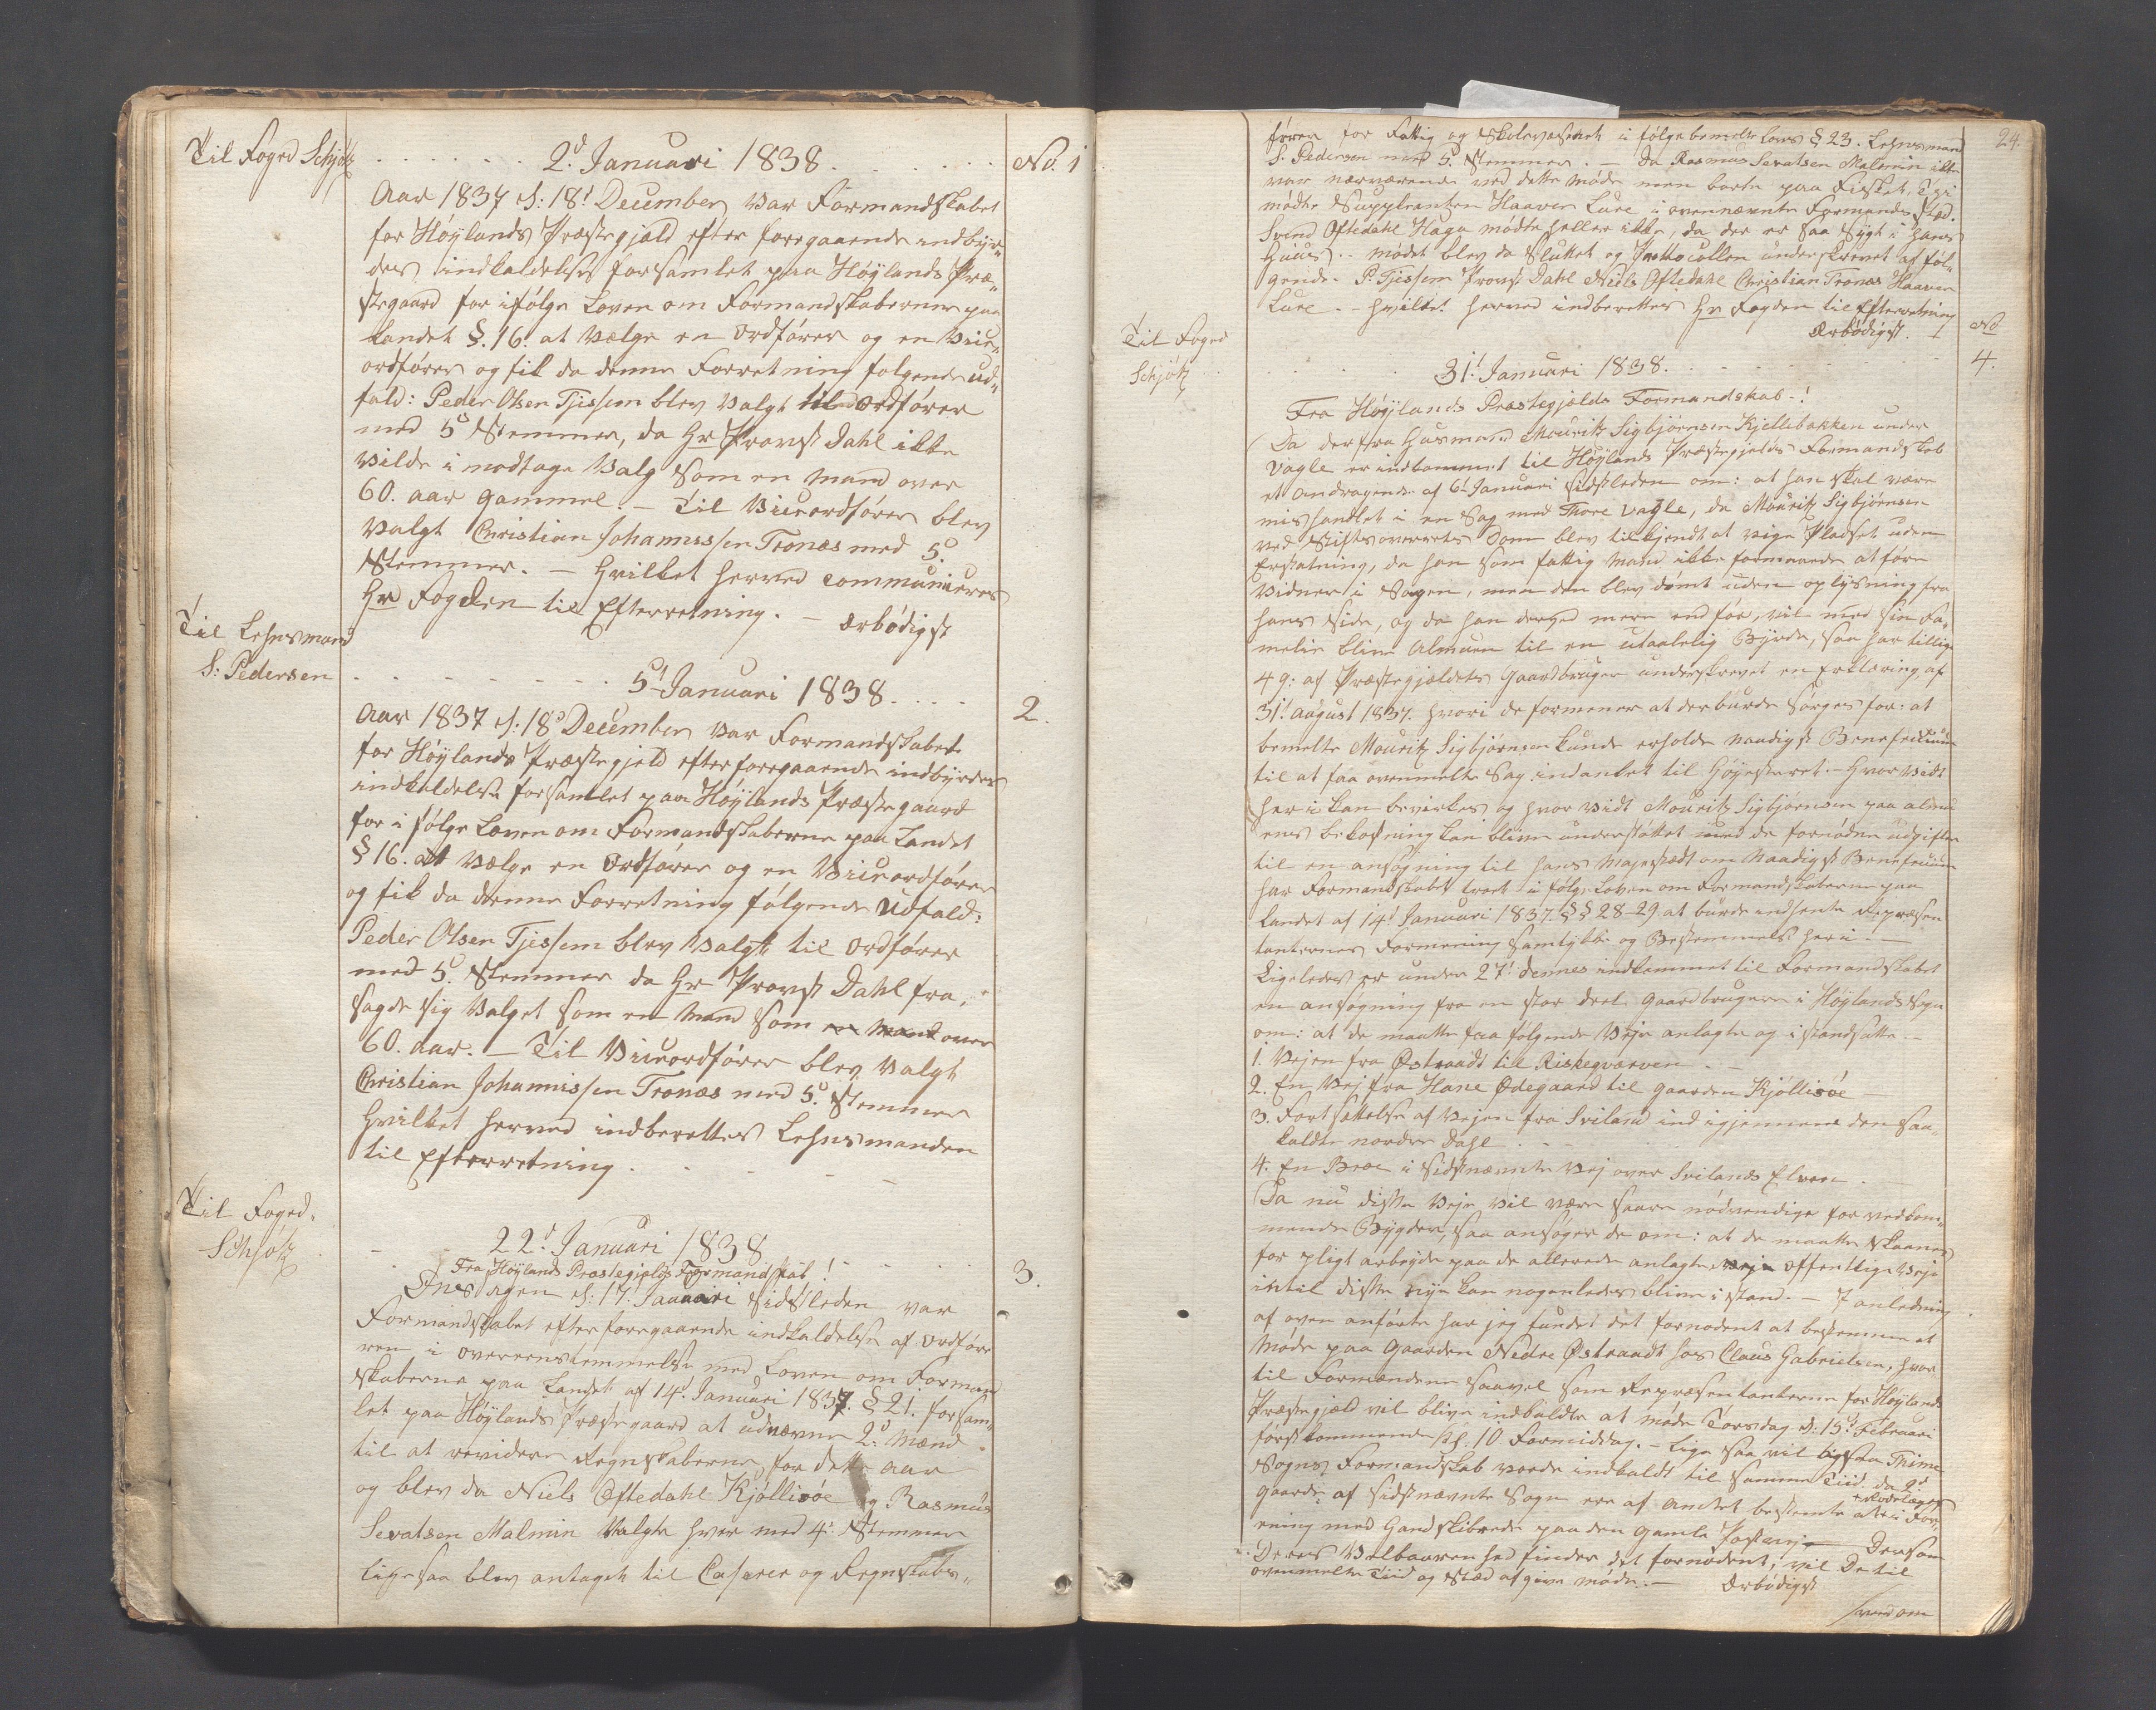 Til Foged Schjøtz
2d Januari 1838.
No. 1
Aar 1837 d: 18d December var Formandskabet
for Höylands Præstegjæld efter foregaaende indbyr„
des indkaldelse forsamlet paa Höylands Præ„
stegaard for ifölge Loven om Formandskaberne paa
Landet §. 16. at vælge en Ordförer og en Vice„
ordförer og fik da denne Forretning folgende ud„
fald: Peder Olsen Tjessem blev valgt til Ordförer
med 5 Stemmer, da Hr Provst Dahl ikke
vilde imodtage Valg som en Mand over
60. aar gammel. - Til Viceordförer blev
valgt Christian Johannessen Tronæs med 5
Stemmer. - Hvilket herved communiceres
Hr Fogden til Efterretning. - Ærbödigst
Til Lehnsmand
S: Pedersen
5t Januari 1838.
2.
Aar 1837 d: 18d December var Formandskabet
for Höylands Præstegjeld efter foregaaende indbyrdes
indkaldelse forsamlet paa Höylands Præstegaard
for i fölge Loven om Formandskaberne paa Landet
§ 16. at vælge en Ordförer og en Viceordförer
og fik da denne Forretning fölgende Udfald:
Peder Olsen Tjessem blev valgt til Ordförer
med 5 Stemmer da Hr Provst Dahl fra„
sagde sig Valget som en Mand som en Mand over
60. aar. - Til Viceordförer blev valgt
Christian Johannissen Tronæs med 5. Stemmer
Hvilket herved indberettes Lehnsmanden
til Efterretning.
Til Foged
Schjøtz
22d Januari 1838
Fra Höylands Præstegjelds Formandskab!
3.
Onsdagen d: 17. Januari sidstleden var
Formandskabet efter foregaaende indkaldelse af Ordföre
ren i overeenstemmelse med Loven om Forman
skaberne paa Landet af 14d Januari 1837. § 21. forsam„
let paa Höylands Præstegaard at udnævne 2d Mænd
til at revidere Regnskaberne for dette aar
og blev da Niels Oftedahl Kjöllisöe og Rasmus
Sevatsen Malmin valgte hver med 4 Stemmer
ligesaa blev antaget til Caserer og Regnskabs„
24.
förer for Fattig og Skolevæsenet i fölge bemelte Lovs § 23. Lehnsmand
S. Pedersen med 5. Stemmer. - Da Rasmus Sevatsen Malmin ikke
var nærværende ved dette Möde men borte paa Fiskerie
mödte Suppleanten Haaver Lure i ovennævnte Formands Stæd.
Svend Oftedahl Haga mödte heller ikke, da der er saa Sygt i hans
Huus. - mödet blev da Sluttet og Prottocollen underskrevet af föl„
gende. P. Tjessem Provst Dahl Niels Oftedahl Christian Tronæs Haaver
Lure. - hvilket herved indberettes Hr Fogden til Efterretning
Ærbödigst.
Til Foged
Schjötz
No
4.
31t Januari 1838.
Fra Höylands Præstegjælds Formandskab-!
Da der fra Husmand Mouritz Sigbjörnsen Kjellebakken under
Vagle er indkommet til Höylands Præstegjelds Formandskab
et Andragende af 6t Januari sidstleden om: at han skal være
mishandlet i en Sag med Thore Vagle, da Mouritz Sigbjörnsen
ved Stiftsoverrets Dom blev tilkjendt at vige Pladset uden
Erstatning, da han som fattig Mand ikke formaaede at före
Vidner i Sagen, men den blev dömt uden oplysning fra
hans Side, og da han derved mere end för, vil med sin Fa„
melie blive Almuen til en utaalelig Byrde, saa har tillige
49: af Præstegjældets Gaardbruger underskrevet en Erklæring af
31t August 1837. hvori de formener at der burde sörges for: at
bemelte Mouritz Sigbjörnsen kunde erholde Naadigst Beneficium
til at faa ovenmelte Sag indanket til Höiesteret. - Hvorvidt
heri kan bevirkes og hvor vidt Mouritz Sigbjörnsen paa almu
ens bekostning kan blive understöttet med de fornödne udgifter
til en ansögning til Hans Majestædt om Naadigst Beneficium
har Formandskabet troet i fölge Loven om Formandskaberne paa
Landet af 14d Januari 1837. §§ 28-29. at burde indhente Repræsen
tanternes Formening samtykke og Bestemmelse heri. -
Ligeledes er under 27t dennes indkommet til Formandskabet
en ansögning fra en stor deel Gaardbrugere i Höylands Sogn
om: at de maatte faa folgende Veje anlagte og istandsatte. -
1. Vejen fra Østraadt til Riskeqværven. -
2. En Vej fra Hane Ødegaard til Gaarden Kjöllisöe -
3. Fortsættelse af Vejen fra Sviland ind igjennem den saa„
kaldte nordre Dahl.
4. En Broe i sidstnævnte Vej over Svilands Elven.
Da nu disse Veje vil være saare nödvendige for vedkom„
mende Bygder, saa ansöger de om: at de maatte skaanes
for pligt arbejde paa de allerede anlagte Veje offentlige Veje
intil disse nye kan nogenledes blive i stand. - I anledning
af oven anförte har jeg fundet det fornödent at bestemme et
Möde paa Gaarden Nedre Østraadt hos Claus Gabrielsen, hvor
til Formændene saavel som Repræsentanterne for Höylands
Præstegjæld vil blive indkaldte at möde Torsdag d: 15d Februari
forstkommende kl. 10 Formiddag. - Lige saa vil ogsaa Thime
Sogns Formandskab vorde indkaldt til samme Tiid. da 2d
Gaarde af sidstnævnte Sogn ere af Amtet bestemte at i For„
+ Rodelægges
ening med Gandskibrede paa den gamle Postvej. Dersom
Deres Velbaarenhed finder det fornödent, vil De til
ovenmelte Tiid og Stæd afgive möde. - Ærbödigst
vend om